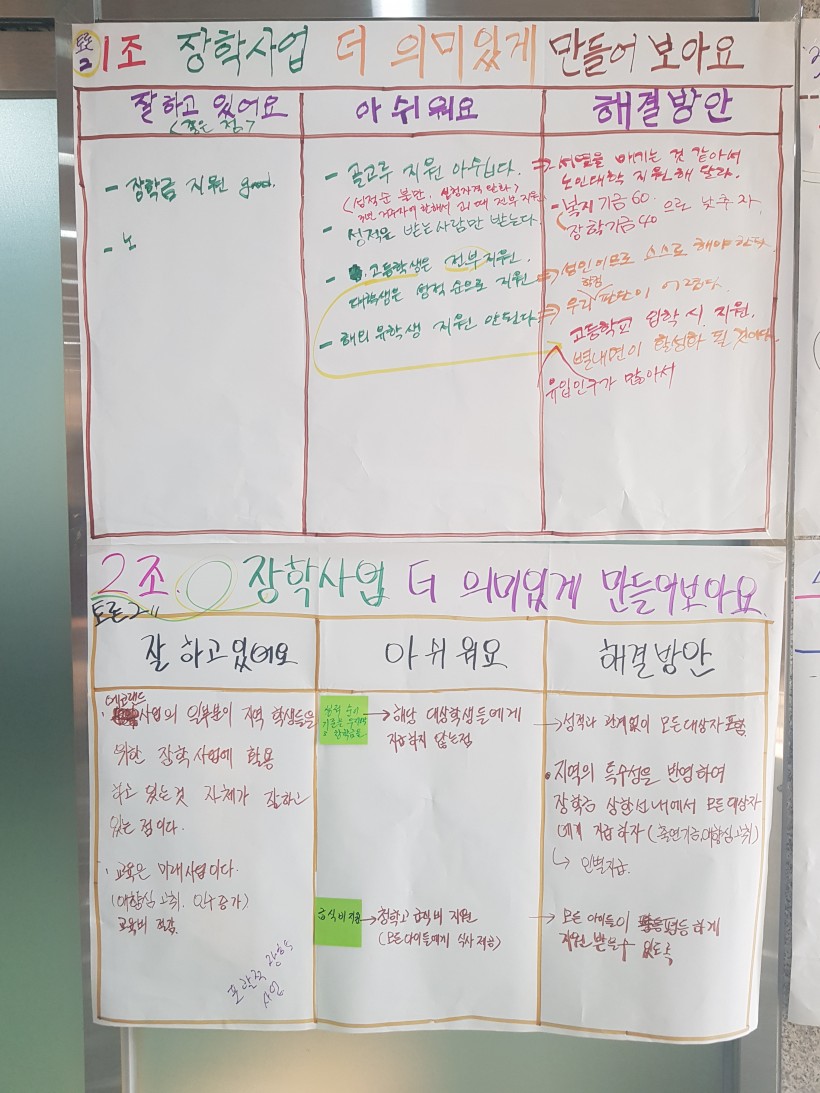 토론
2
1조 장학사업 더 의미있게 만들어 보아요
잘하고 있어요
<좋은 점>
아쉬워요
해결방안
- 장학금 지원 good.
- 노
- 골고루 지원 아쉽다.
- 성적을 받는사람만 받는다.
- 고등학생은 전부지원.
대학생은 성적 순으로 지원
- 해외 유학생 지원 안된다.
매기는 것 같아서
노인대학 지원해 달라.
- 복지기금 60.
장학기금 40 으로 낮추자.
성인이므로 스스로 해야 한다
우리 판단이 어렵다.
고등학교 입학 시 지원.
별내면이 활성화 될 것이다.
유입인구가 많아서
2조. 장학사업 더 의미있게 만들어보아요.
토론2-11
잘 하고있어요
아쉬워요
해결방안
에코랜드
· 사업의 일부분이 지역 학생들을
위한 장학사업에 활용
하고 있는것 자체가 잘하고
있는 점이다.
· 교육은 미래사업이다.
(애향심 고취, 인구증가)
교육비 절감
장학
사업
→ 해당 대상학생들에게
지급하지 않는점
급식비 지원
→ 청학고 급식비 지원
(모든아이들에게 식사 제공)
→ 성적과 관계없이 모든대상자 포함
• 지역의 특수성을 반영하여
장학금 상한선내에서 모든대상자
에게 지급하자 (출연기금, 애향심고취)
↳ 인별지급.
→ 모든 아이들이 평등하게
지원 받을수 있도록